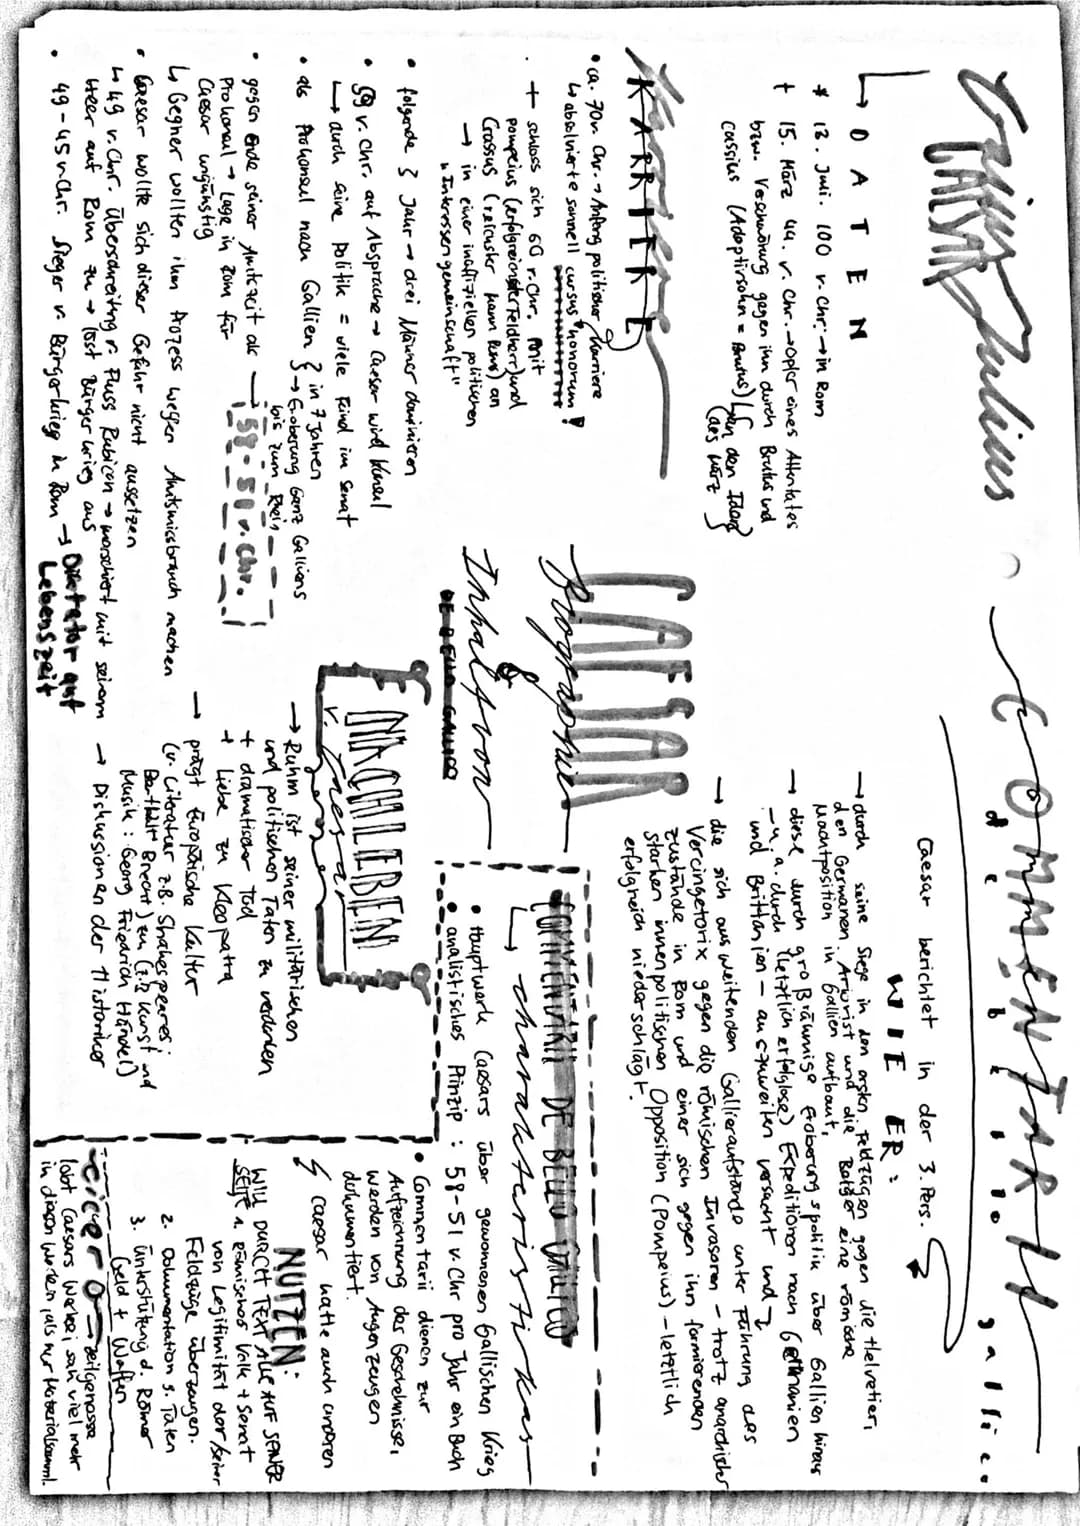 Gaius Julius
CAESAR
↳ DATEN
* 13. Juli. 100 v. Chr. → in Rom
† 15. März 44. v. Chr. → Opfer eines Attentates
bzw. Verschwörung gegen ihn durch Brutus und
Cassius (Adoptivsohn = Brutus) (an den Iden
des März)
Karriere
KARRIERE
• ca. 70 v. Chr. → Anfang politischer Karriere
↳ absolvierte schnell cursus honorum!
+ schloss sich 60 v. Chr. mit
Pompeius (erfolgreichster Feldherr) und
Crassus (reichster Mann Roms) an
→ in einer inoffiziellen politischen
"Interessengemeinschaft"
• folgende 3 Jahr → drei Männer dominieren
• 59 v. Chr. auf Absprache → Caesar wird Konsul
→ durch seine Politik = viele Feind im Senat
• als Prokonsul nach Gallien } in 7 Jahren
→ Eroberung ganz Galliens
bis zum Rhein
• gegen Ende seiner Amtszeit als → 58-51 v. Chr.
Prokonsul → Lage in Rom für
Caesar ungünstig
↳ Gegner wollten ihm Prozess wegen Amtsmissbrauch machen
• Caesar wollte sich dieser Gefahr nicht aussetzen
↳ 49 v. Chr. Überschreitung v. Fluss Rubicon → marschiert mit seinem
Heer auf Rom zu → löst Bürgerkrieg aus
• 49-45 v. Chr. Sieger v. Bürgerkrieg in Rom → Diktator auf
Lebenszeit
CAESAR
Biographie
&
Inhalt von
DE BELLO GALLICO
NACHLEBEN
v. Caesar
→ Ruhm ist seiner militärischen
und politischen Taten zu verdanken
+ dramatischer Tod
+ Liebe zu Kleopatra
→ prägt Europäische Kultur
(v. Literatur z.B. Shakespeare;
Berthold Brecht) zu (z.B. Kunst und
Musik: Georg Friedrich Händel)
→ Diskussionen der Historiker
COMMENTARII
de bello gallico
Caesar berichtet in der 3. Pers.
WIE ER:
→ durch seine Siege in den ersten Feldzügen gegen die Helvetier,
den Germanen Ariovist und die Belger eine römische
Machtposition in Gallien aufbaut,
→ diese durch großräumige Eroberungspolitik über Gallien hinaus
- u.a. durch (letztlich erfolglose) Expeditionen nach Germanien
und Britannien - auszuweiten versucht und
→ die sich ausweitenden Gallieraufstände unter Führung des
Vercingetorix gegen die römischen Invasoren - trotz anarchischer
Zustände in Rom und einer sich gegen ihn formierenden
starken innenpolitischen Opposition (Pompeius) - letztlich
erfolgreich niederschlägt.
COMMENTARII DE BELLO GALLICO
↳ charakteristikas
• Hauptwerk Caesars über gewonnenen Gallischen Krieg
• analistisches Prinzip: 58-51 v. Chr pro Jahr ein Buch
• Commentarii dienen zur
Aufzeichnung des Geschehnisse,
werden von Augenzeugen
dokumentiert.
↯ Caesar hatte auch anderen
NUTZEN:
WILL DURCH TEXT ALLE AUF SEINER
SEITE 1. Römisches Volk + Senat
von Legitimität der/seiner
Feldzüge überzeugen.
2. Dokumentation s. Taten
3. Unterstützung d. Römer
Geld + Waffen
Cicero → Zeitgenosse
lobt Caesars Werke; sah viel mehr
in diesen Werken, als nur Materialsamml.